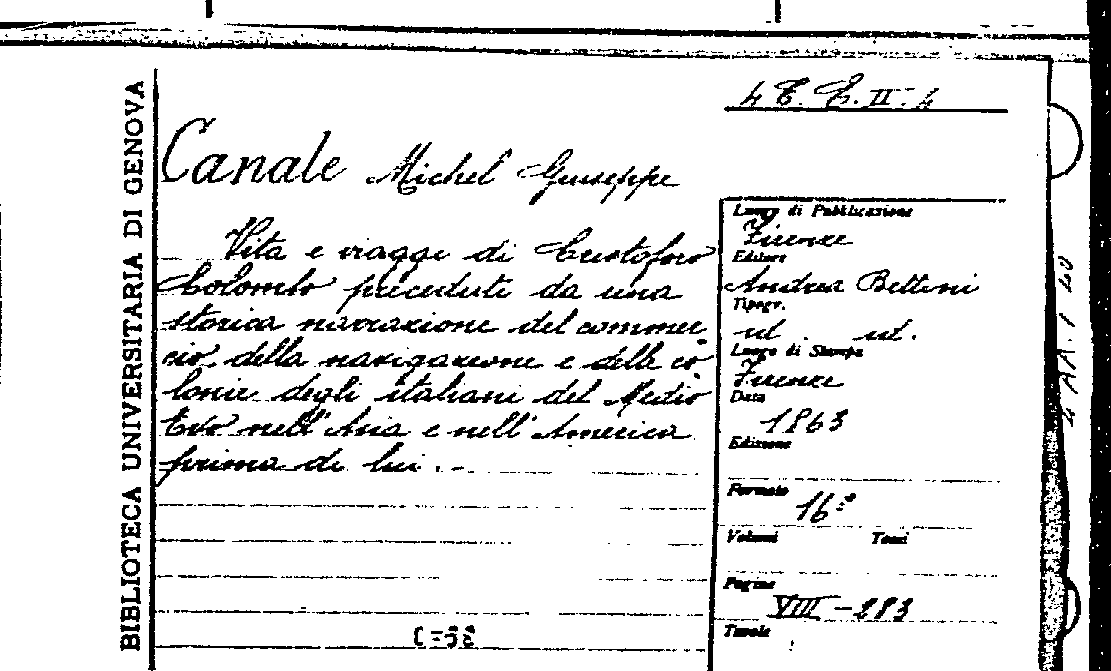 BIBLIOTECA UNIVERSITARIA DI GENOVA
Canale Michel Giuseppe
Vita e viaggi di Cristoforo
Colombo preceduti da una
storica narrazione del commer
cio della navigazione e delle co
lonie degli italiani del Medio
Evo nell'Asia e nell'America
prima di lui.
4 II. 4
Luogo di Pubblicazione
Firenze
Editore
Andrea Bettini
Tipogr.
id. id.
Luogo di Stampa
Firenze
Data
1863
Edizione
Formato
16º
Volumi Tomi
Pagine
VIII-283
Tavole